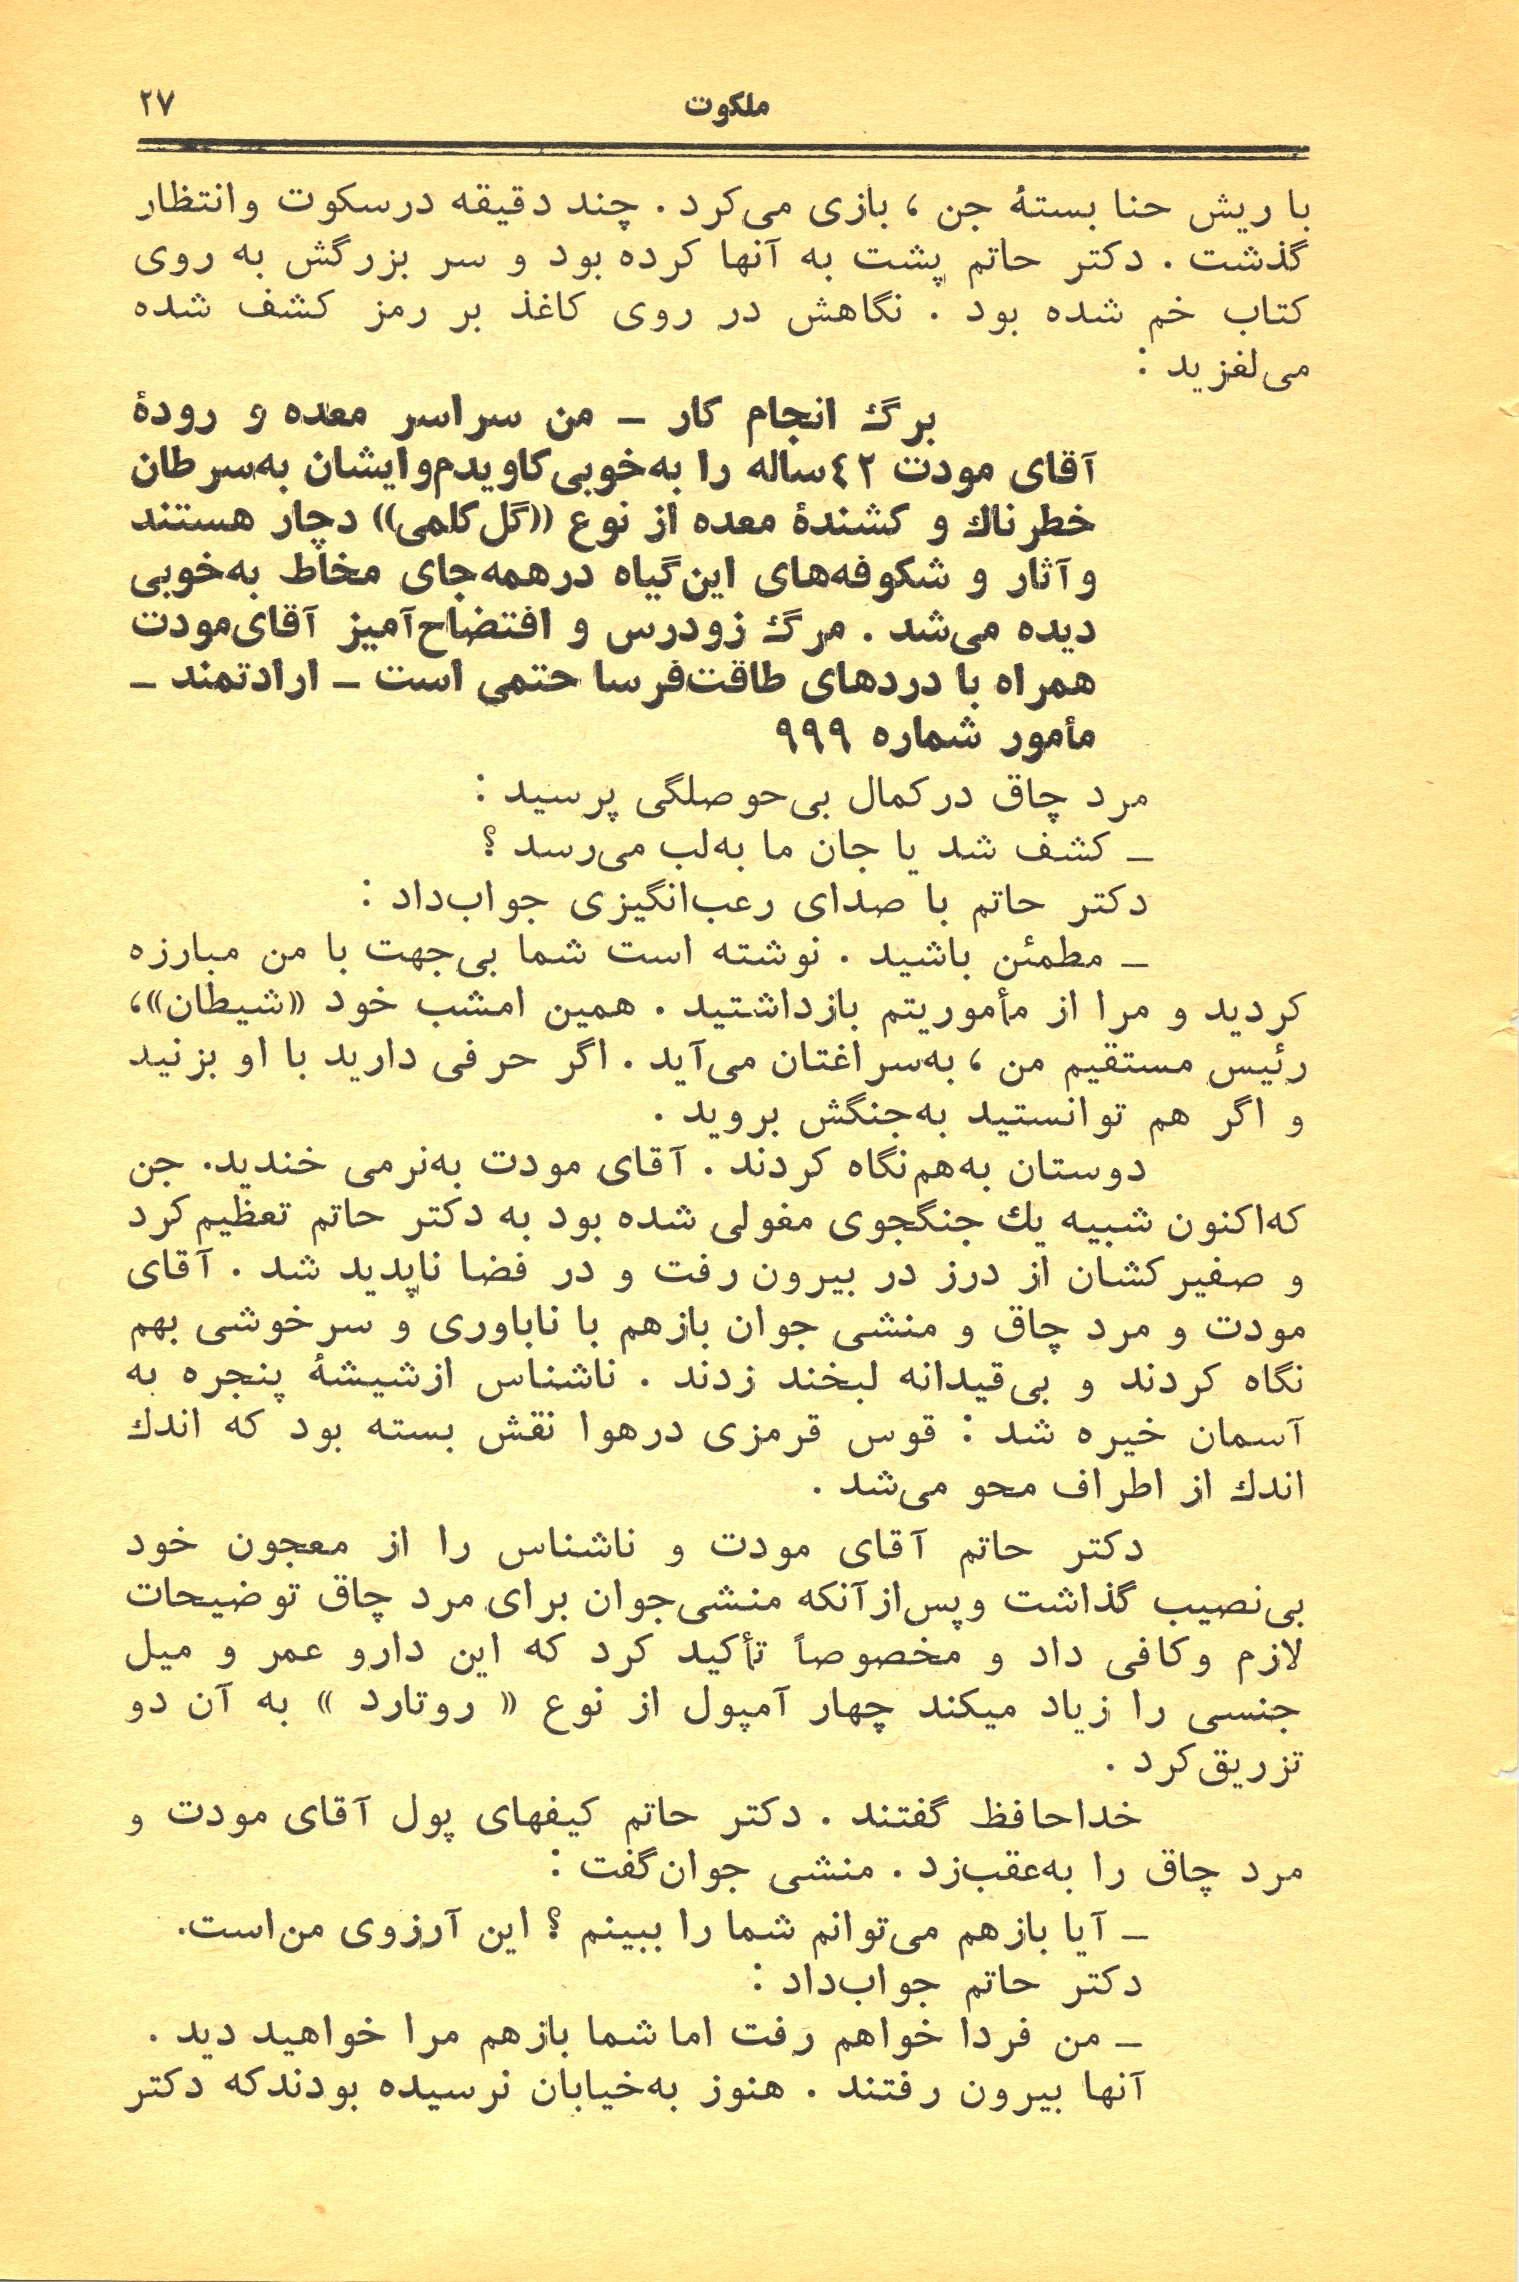 ملکوت ۲۷
با ریش حنا بستهٔ جن ، بازی می‌کرد . چند دقیقه درسکوت وانتظار
گذشت . دکتر حاتم پشت به آنها کرده بود و سر بزرگش به روی
کتاب خم شده بود . نگاهش در روی کاغذ بر رمز کشف شده
می‌لغزید :
برگ انجام کار ــ من سراسر معده و رودهٔ
آقای مودت ٤٢ساله را به‌خوبی‌کاویدم‌وایشان به‌سرطان
خطرناك و کشندهٔ معده از نوع «گل‌کلمی» دچار هستند
وآثار و شکوفه‌های این‌گیاه درهمه‌جای مخاط به‌خوبی
دیده می‌شد . مرگ زودرس و افتضاح‌آمیز آقای‌مودت
همراه با دردهای طاقت‌فرسا حتمی است ــ ارادتمند ــ
مأمور شماره ۹۹۹
مرد چاق درکمال بی‌حوصلگی پرسید :
ــ کشف شد یا جان ما به‌لب می‌رسد ؟
دکتر حاتم با صدای رعب‌انگیزی جواب‌داد :
ــ مطمئن باشید . نوشته است شما بی‌جهت با من مبارزه
کردید و مرا از مأموریتم بازداشتید . همین امشب خود «شیطان»،
رئیس مستقیم من ، به‌سراغتان می‌آید . اگر حرفی دارید با او بزنید
و اگر هم توانستید به‌جنگش بروید .
دوستان به‌هم‌نگاه کردند . آقای مودت به‌نرمی خندید. جن
که‌اکنون شبیه یك جنگجوی مغولی شده بود به دکتر حاتم تعظیم‌کرد
و صفیرکشان از درز در بیرون رفت و در فضا ناپدید شد . آقای
مودت و مرد چاق و منشی جوان بازهم با ناباوری و سرخوشی بهم
نگاه کردند و بی‌قیدانه لبخند زدند . ناشناس ازشیشهٔ پنجره به
آسمان خیره شد : قوس قرمزی درهوا نقش بسته بود که اندك
اندك از اطراف محو می‌شد .
دکتر حاتم آقای مودت و ناشناس را از معجون خود
بی‌نصیب گذاشت وپس‌ازآنکه منشی‌جوان برای مرد چاق توضیحات
لازم وکافی داد و مخصوصاً تأکید کرد که این دارو عمر و میل
جنسی را زیاد میکند چهار آمپول از نوع « روتارد » به آن دو
تزریق‌کرد .
خداحافظ گفتند . دکتر حاتم کیفهای پول آقای مودت و
مرد چاق را به‌عقب‌زد . منشی جوان‌گفت :
ــ آیا بازهم می‌توانم شما را ببینم ؟ این آرزوی من‌است.
دکتر حاتم جواب‌داد :
ــ من فردا خواهم رفت اما شما بازهم مرا خواهید دید .
آنها بیرون رفتند . هنوز به‌خیابان نرسیده بودندکه دکتر